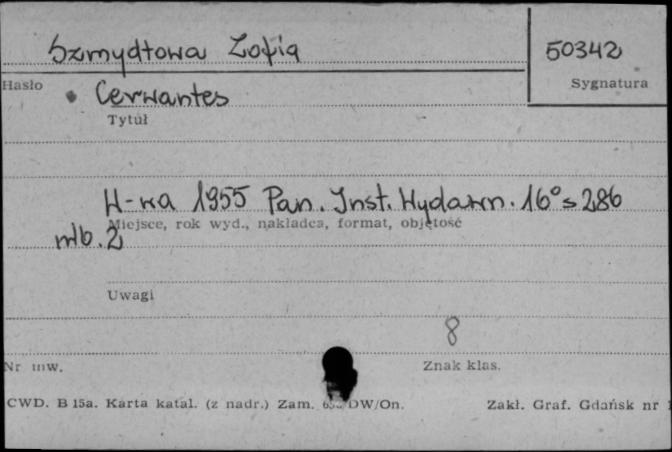 Szmydtowa Zofia
50342
Hasło
Sygnatura
Cerwantes
Tytuł
W-wa 1955 Pan. Inst. Wydawn. 16° s 286
Miejsce, rok wyd., nakładca, format, objętość
nlb. 2
Uwagi
8
Nr inw.
Znak klas.
CWD. B 15a. Karta katal. (z nadr.) Zam. DW/On.
Zakł. Graf. Gdańsk nr